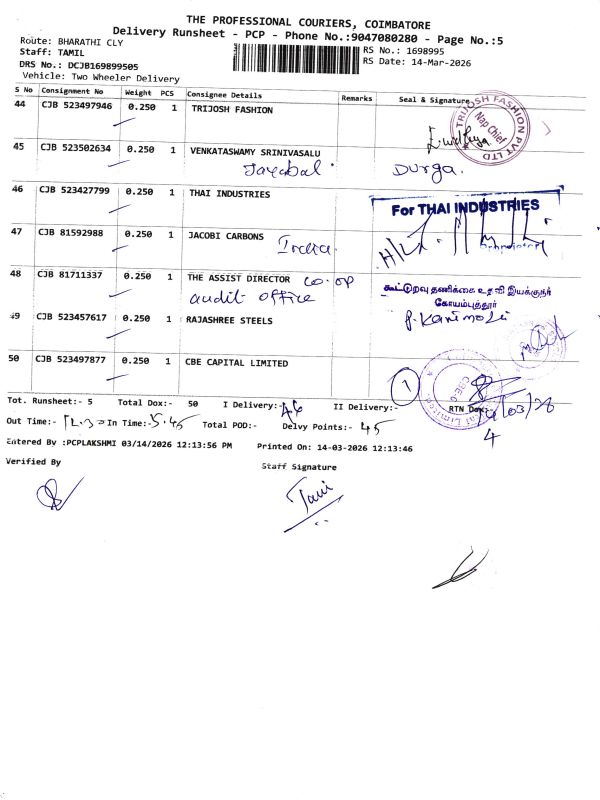 THE PROFESSIONAL COURIERS, COIMBATORE
Delivery Runsheet - PCP - Phone No.:9047080280 - Page No.:5
Route: BHARATHI CLY
RS No.: 1698995
Staff: TAMIL
RS Date: 14-Mar-2026
DRS No.: DCJB169899505
Vehicle: Two Wheeler Delivery
S No Consignment No Weight PCS Consignee Details Remarks Seal & Signature
44 CJB 523497946 0.250 1 TRIJOSH FASHION
TRIJOSH FASHION PVT LTD
45 CJB 523502634 0.250 1 VENKATASWAMY SRINIVASALU
Jayabal Durga.
46 CJB 523427799 0.250 1 THAI INDUSTRIES
For THAI INDUSTRIES
47 CJB 81592988 0.250 1 JACOBI CARBONS
Indra.
48 CJB 81711337 0.250 1 THE ASSIST DIRECTOR co-op
audit office
கூட்டுறவு தணிக்கை உதவி இயக்குநர்
கோயம்புத்தூர்
49 CJB 523457617 0.250 1 RAJASHREE STEELS
50 CJB 523497877 0.250 1 CBE CAPITAL LIMITED
1
Tot. Runsheet:- 5 Total Dox:- 50 I Delivery:- 46 II Delivery:- RTN Dox:- 4
Out Time:- In Time:- 5.45 Total POD:- Delvy Points:- 45
Entered By :PCPLAKSHMI 03/14/2026 12:13:56 PM Printed On: 14-03-2026 12:13:46
Verified By
Staff Signature